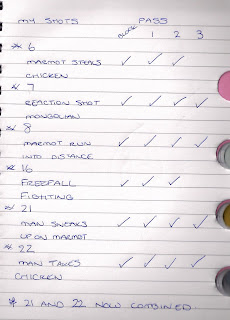 MY SHOTS PASS
BLOCK 1 2 3
* 6 ✓ ✓ ✓
MARMOT STEALS
CHICKEN
* 7
REACTION SHOT ✓ ✓ ✓ ✓
MONGOLIAN
* 8
MARMOT RUN ✓ ✓ ✓ ✓
INTO DISTANCE
* 16
FREEFALL ✓ ✓ ✓
FIGHTING
* 21
MAN SNEAKS ✓ ✓ ✓ ✓
UPON MARMOT
* 22
MAN TAKES ✓ ✓ ✓ ✓
CHICKEN
* 21 AND 22 NOW COMBINED.